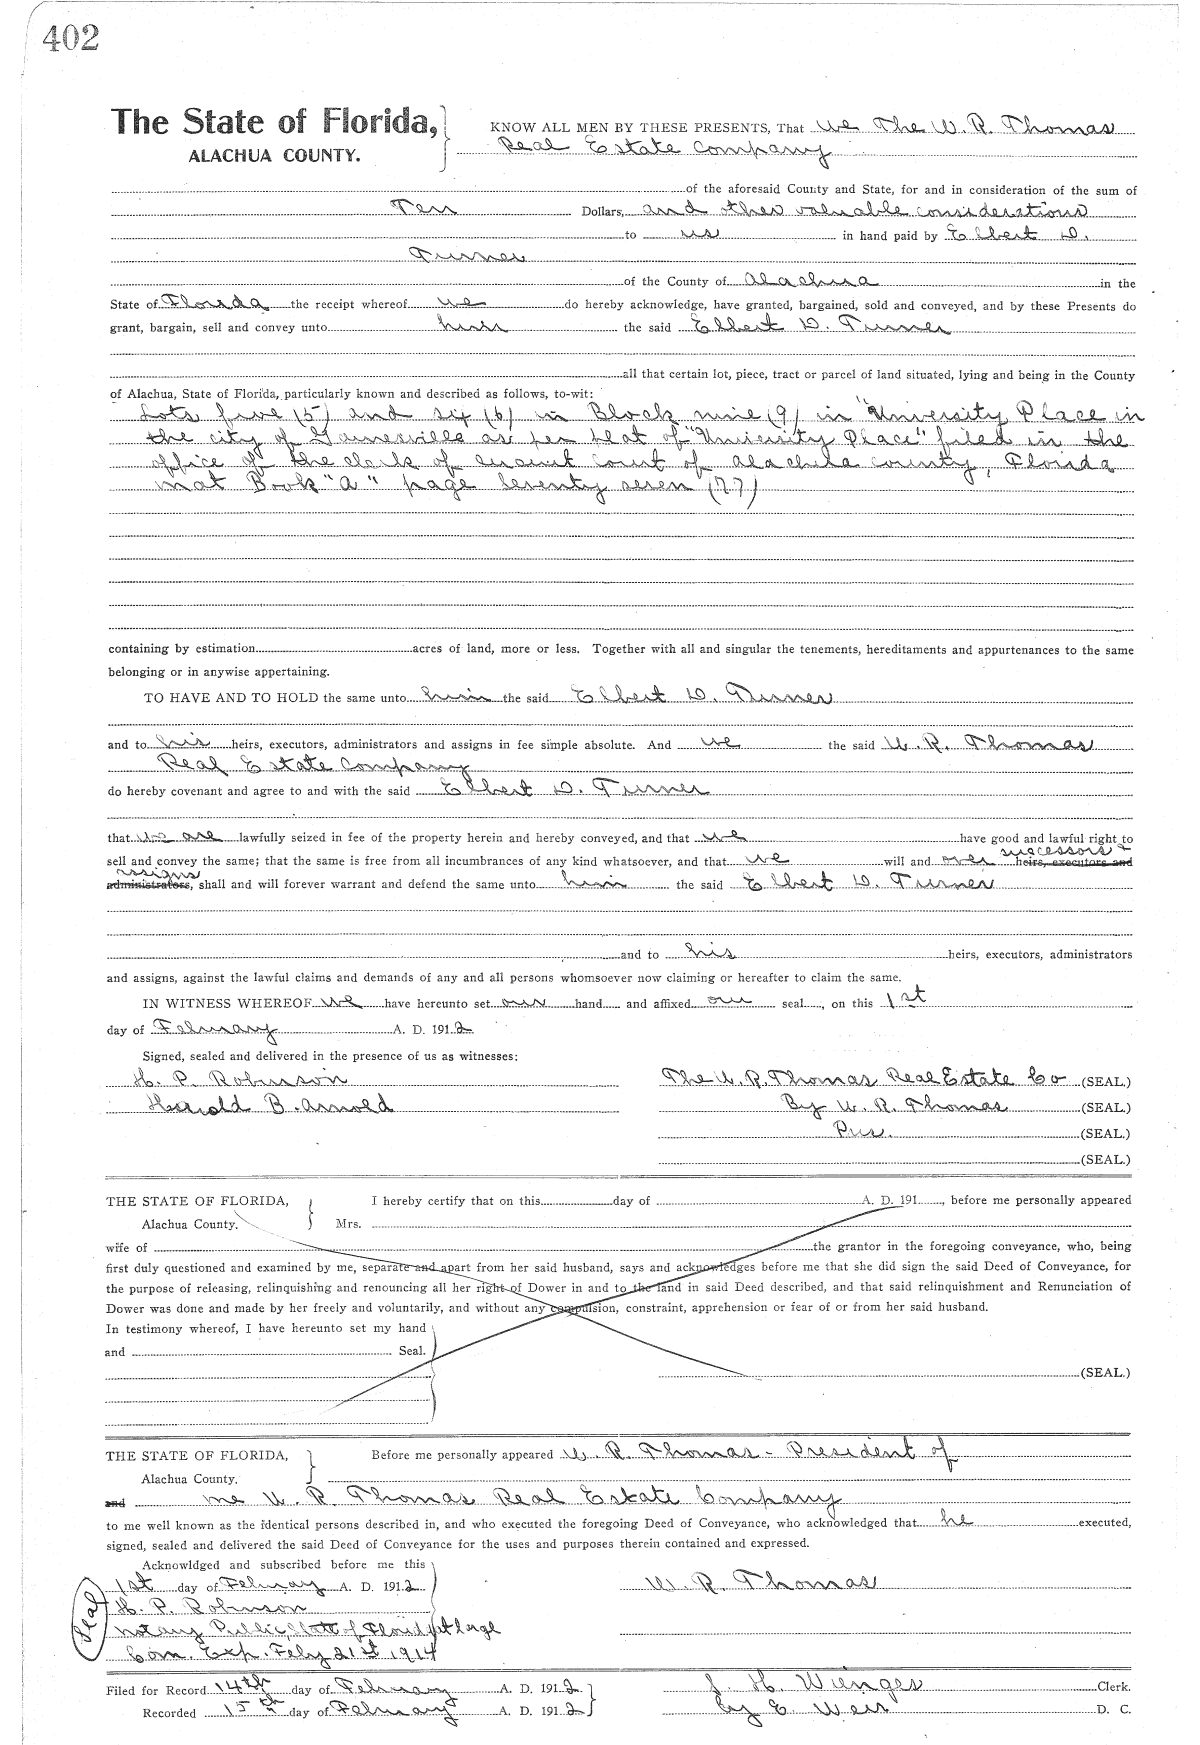 402
The State of Florida, KNOW ALL MEN BY THESE PRESENTS, That we The W. R. Thomas
ALACHUA COUNTY. Real Estate Company
of the aforesaid County and State, for and in consideration of the sum of
Ten Dollars, and other valuable considerations
to us in hand paid by Elbert D.
Turner
of the County of Alachua in the
State of Florida the receipt whereof we do hereby acknowledge, have granted, bargained, sold and conveyed, and by these Presents do
grant, bargain, sell and convey unto him the said Elbert D. Turner
all that certain lot, piece, tract or parcel of land situated, lying and being in the County
of Alachua, State of Florida, particularly known and described as follows, to-wit:
Lots five (5) and six (6) in Block nine (9) in "University Place in
the city of Gainesville as per plat of "University Place" filed in the
office of the clerk of circuit court of Alachula county, Florida
Book "A" page seventy seven (77)
containing by estimation acres of land, more or less. Together with all and singular the tenements, hereditaments and appurtenances to the same
belonging or in anywise appertaining.
TO HAVE AND TO HOLD the same unto him the said Elbert D. Turner
and to his heirs, executors, administrators and assigns in fee simple absolute. And we the said W. R. Thomas
Real Estate Company
do hereby covenant and agree to and with the said Elbert D. Turner
that we are lawfully seized in fee of the property herein and hereby conveyed, and that we have good and lawful right to
sucessors &
sell and convey the same; that the same is free from all incumbrances of any kind whatsoever, and that we will and over heirs, executors and
assigns
administrators, shall and will forever warrant and defend the same unto him the said Elbert D. Turner
and to his heirs, executors, administrators
and assigns, against the lawful claims and demands of any and all persons whomsoever now claiming or hereafter to claim the same.
IN WITNESS WHEREOF we have hereunto set our hand and affixed our seal, on this 1st
day of February A. D. 1912
Signed, sealed and delivered in the presence of us as witnesses:
H. P. Robinson The W. R. Thomas Real Estate Co (SEAL.)
Harold B. Arnold By W. R. Thomas (SEAL.)
Pres. (SEAL.)
(SEAL.)
THE STATE OF FLORIDA, I hereby certify that on this day of A. D. 191, before me personally appeared
Alachua County. Mrs.
wife of the grantor in the foregoing conveyance, who, being
first duly questioned and examined by me, separate and apart from her said husband, says and acknowledges before me that she did sign the said Deed of Conveyance, for
the purpose of releasing, relinquishing and renouncing all her right of Dower in and to the land in said Deed described, and that said relinquishment and Renunciation of
Dower was done and made by her freely and voluntarily, and without any compulsion, constraint, apprehension or fear of or from her said husband.
In testimony whereof, I have hereunto set my hand
and Seal.
(SEAL.)
THE STATE OF FLORIDA, Before me personally appeared W. R. Thomas - President of
Alachua County.
and W. R. Thomas Real Estate Company
to me well known as the identical persons described in, and who executed the foregoing Deed of Conveyance, who acknowledged that he executed,
signed, sealed and delivered the said Deed of Conveyance for the uses and purposes therein contained and expressed.
Acknowldged and subscribed before me this
1st day of February A. D. 1912 W. R. Thomas
Seal
H. P. Robinson
Notary Public, State of Florida at large
Com. Exp. Feby 21st 1914
Filed for Record 14th day of February A. D. 1912 J. H. Wienges Clerk.
Recorded 15th day of February A. D. 1912 by E. Weir D. C.